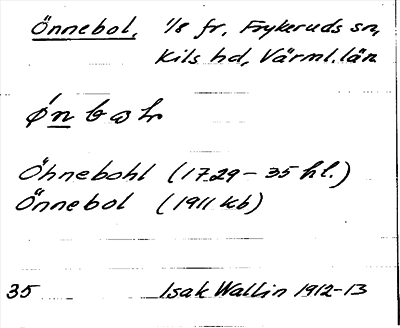 Önnebol, 1/8 fr, Frykeruds sn,
Kils hd, Värml. län
Öhnebohl (1729-35 hl.)
Önnebol (1911 kb)
35 Isak Wallin 1912-13